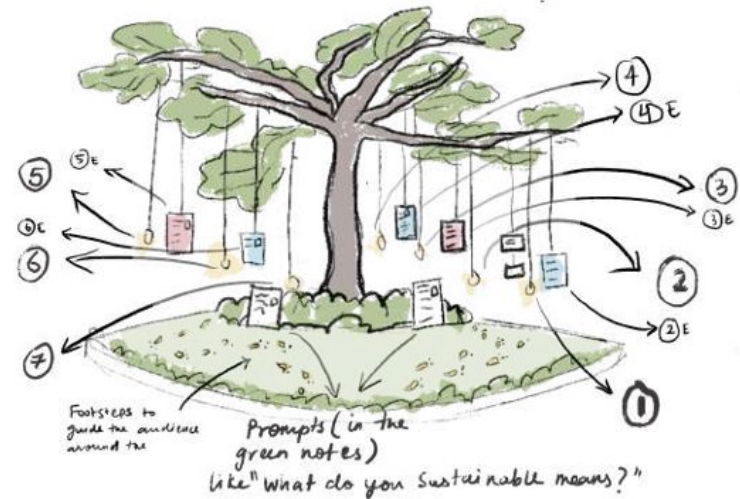 4
4 E
5 E
5
3
3 E
6 E
6
2
2 E
7
1
Footsteps to
guide the audience
around the
Prompts (in the
green notes)
like "what do you sustainable means?"